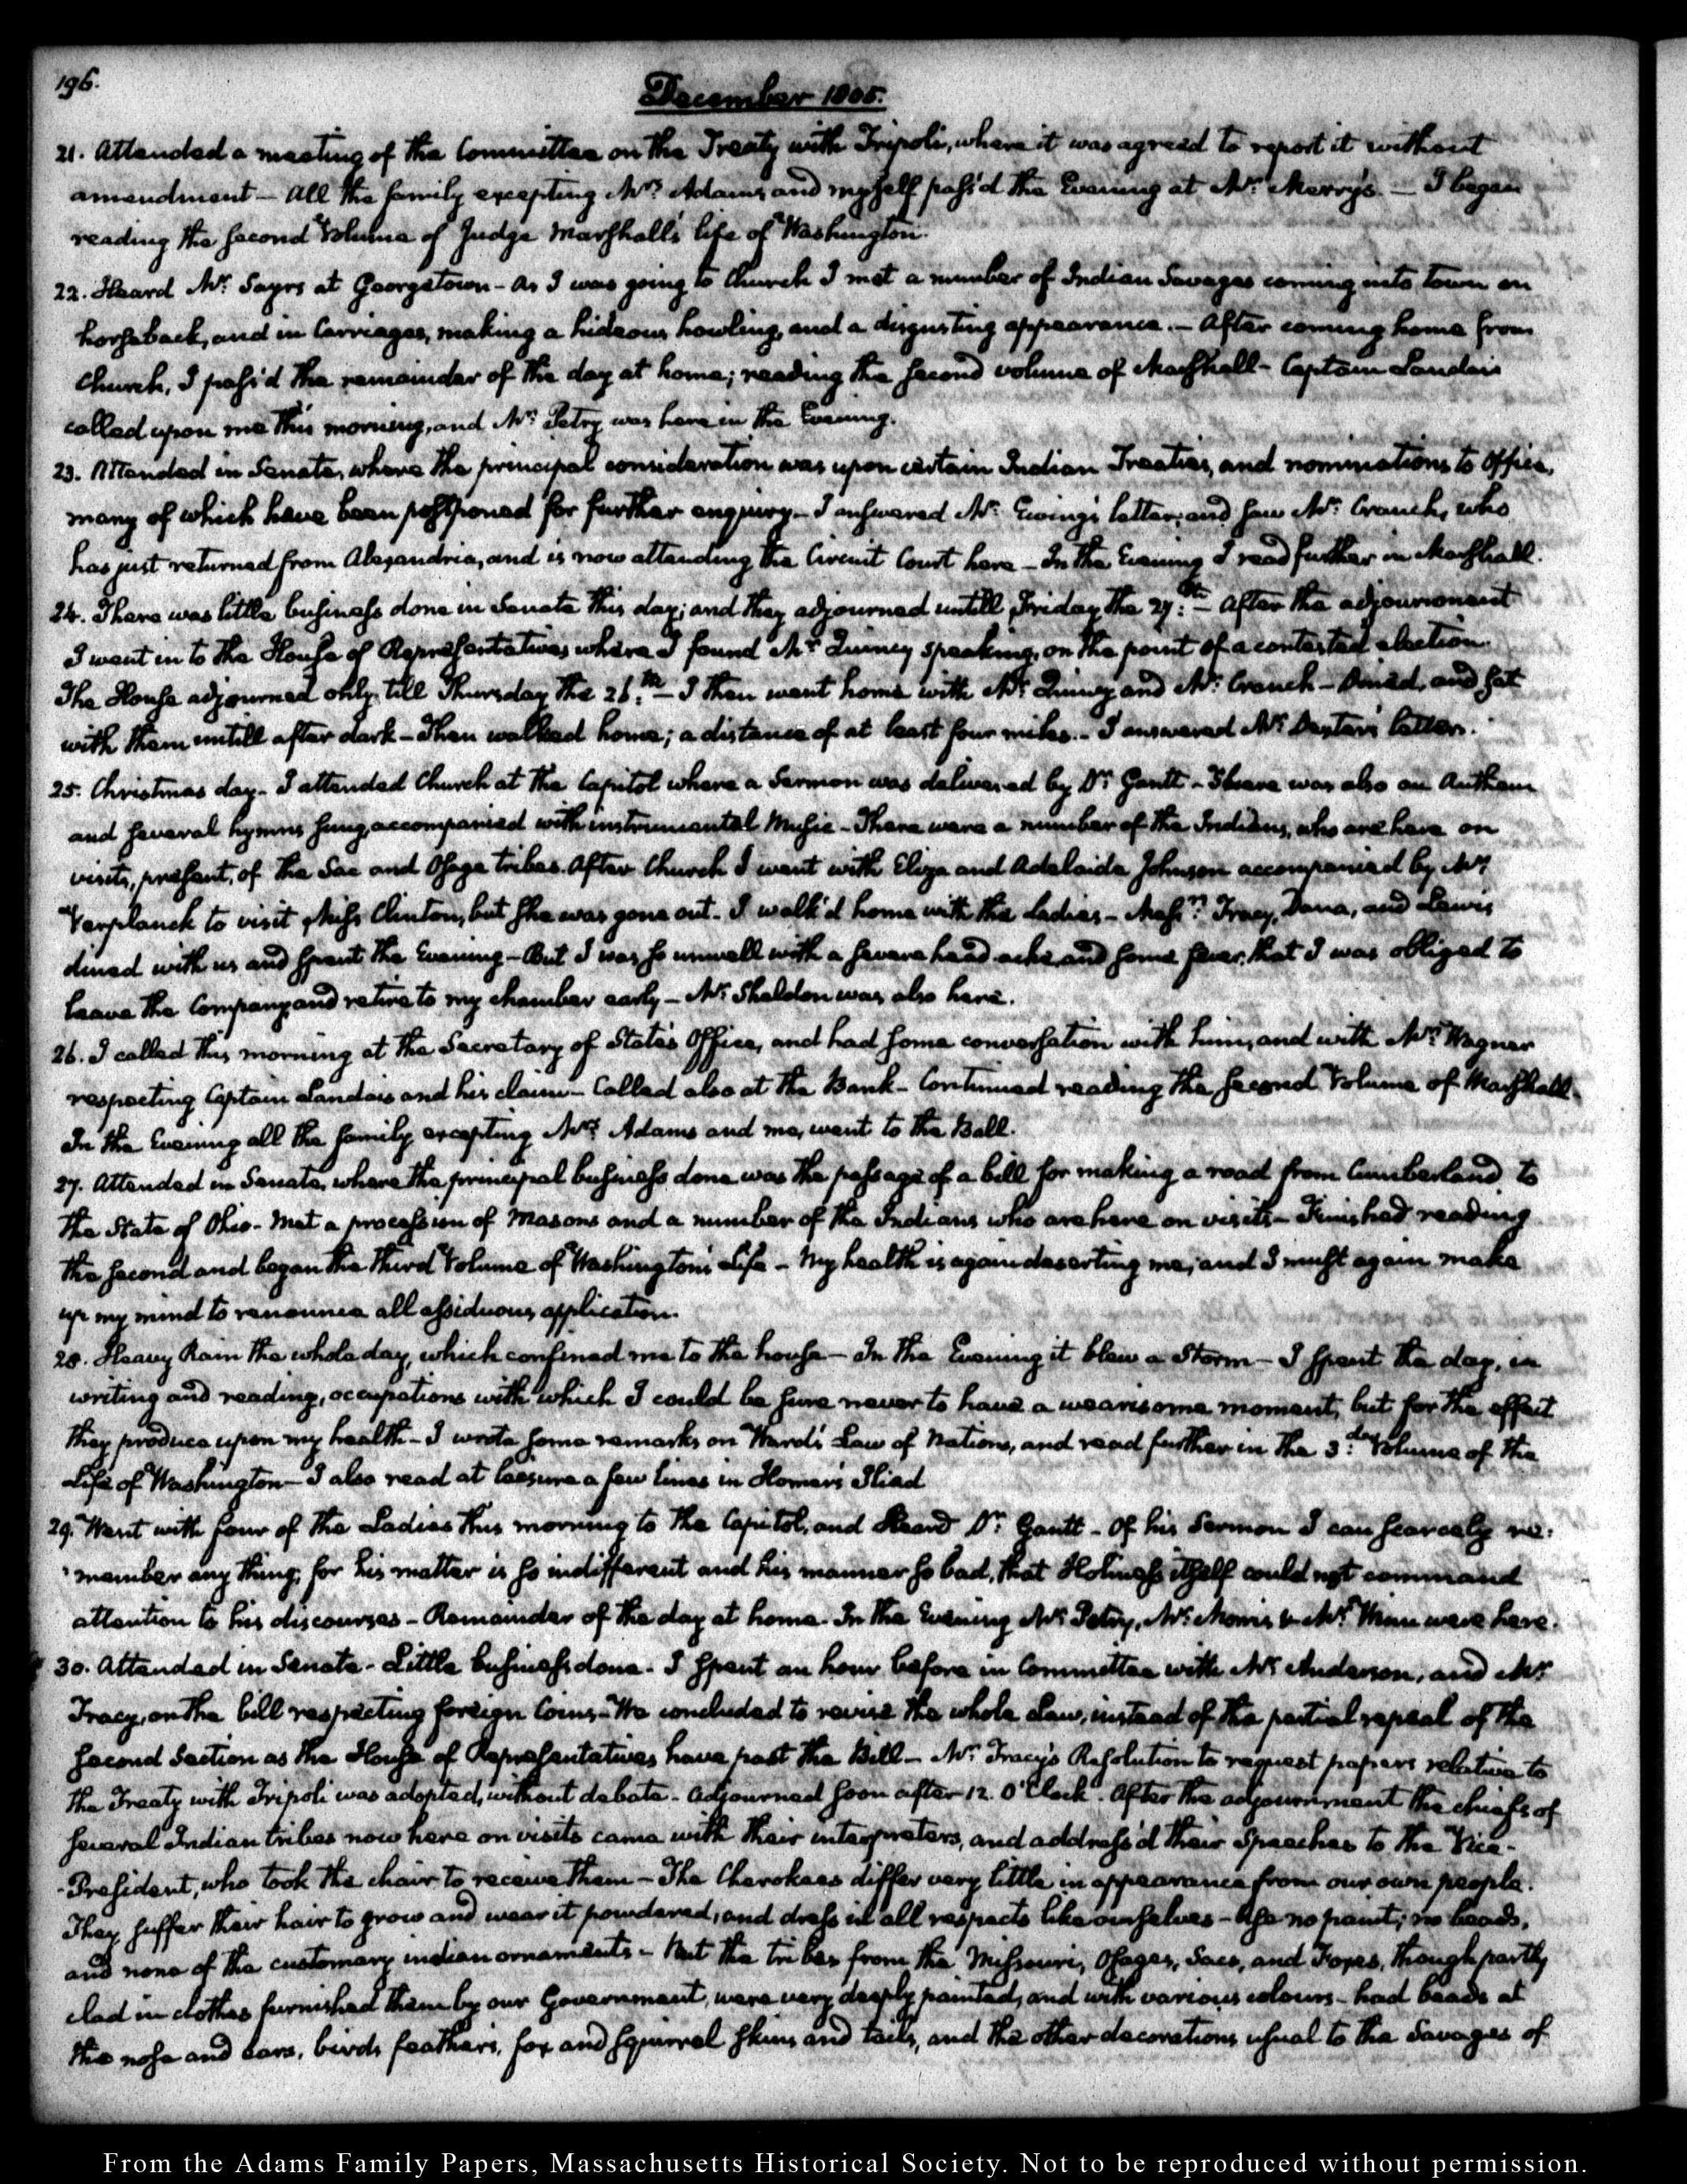 196.
December 1805.
21. Attended a meeting of the Committee on the Treaty with Tripoli, where it was agreed to report it without
amendment — All the family excepting Mrs. Adams, and myself pass'd the Evening at Mr. Merry's. — I began
reading the second Volume of Judge Marshall's life of Washington.
22. Heard Mr. Sayrs at Georgetown - As I was going to Church I met a number of Indian Savages coming into town on
horseback, and in Carriages, making a hideous howling, and a disgusting appearance. — After coming home from
Church, I pass'd the remainder of the day at home; reading the second volume of Marshall - Captain Landais
called upon me this morning, and Mr. Petry was here in the Evening.
23. Attended in Senate, where the principal consideration was upon certain Indian Treaties, and nominations to office,
many of which have been postponed for further enquiry. — I answered Mr. Ewing's letter; and saw Mr. Cranch, who
has just returned from Alexandria, and is now attending the Circuit Court here — In the Evening I read further in Marshall.
24. There was little business done in Senate this day; and they adjourned untill Friday the 27:th — After the adjournment
I went in to the House of Representatives where I found Mr. Quincy speaking, on the point of a contested election.
The House adjourned only till Thursday the 26:th — I then went home with Mr. Quincy and Mr. Cranch — Dined, and sat
with them untill after dark — Then walked home; a distance of at least four miles. — I answered Mr. Dexter's letter.
25. Christmas day - I attended Church at the Capitol where a Sermon was delivered by Dr. Gantt - There was also an Anthem
and several hymns sung, accompanied with instrumental Music - There were a number of the Indians, who are here on
visits, present, of the Sac and Osage tribes. After Church I went with Eliza and Adelaide Johnson accompanied by Mr.
Verplanck to visit Miss Clinton, but she was gone out. I walk'd home with the Ladies — Mess.rs Tracy, Dana, and Lewis
dined with us and spent the Evening — But I was so unwell with a severe head-ache, and some fever, that I was obliged to
leave the Company, and retire to my chamber early — Mr. Sheldon was also here.
26. I called this morning at the Secretary of State's Office, and had some conversation with him, and with Mr. Wagner
respecting Captain Landais and his claim — Called also at the Bank — Continued reading the second Volume of Marshall.
In the Evening all the family excepting Mrs. Adams and me, went to the Ball.
27. Attended in Senate, where the principal business done was the passage of a bill for making a road from Cumberland, to
the State of Ohio - Met a procession of Masons and a number of the Indians who are here on visits — Finished reading
the second and began the third Volume of Washington's Life - My health is again deserting me; and I must again make
up my mind to renounce all assiduous application.
28. Heavy Rain the whole day, which confined me to the house — In the Evening it blew a Storm — I spent the day, in
writing and reading, occupations with which I could be sure never to have a wearisome moment, but for the effect
they produce upon my health — I wrote some remarks on Ward's Law of Nations, and read further in the 3:d Volume of the
Life of Washington — I also read at leesure a few lines in Homer's Iliad
29. Went with four of the Ladies this morning to the Capitol, and Heard Dr. Gantt - Of his Sermon I can scarcely re:
:member any thing; for his matter is so indifferent and his manner so bad, that Holiness itself could not command
attention to his discourses - Remainder of the day at home. In the Evening Mr. Petry, Mr. Morris & Mr. were here.
30. Attended in Senate - Little business done. I spent an hour before in Committee with Mr. Anderson, and Mr.
Tracy, on the bill respecting foreign Coins - We concluded to revise the whole Law, instead of the partial repeal of the
second Section as the House of Representatives have past the Bill — Mr. Tracy's Resolution to request papers relative to
the Treaty with Tripoli was adopted, without debate - Adjourned soon after 12. O'Clock. After the adjournment the chiefs of
several Indian tribes now here on visits came with their interpreters, and address'd their Speeches to the Vice-
-President, who took the chair to receive them — The Cherokees differ very little in appearance from our own people.
They suffer their hair to grow and wear it powdered, and dress in all respects like ourselves - Use no paint; no beads,
and none of the customary indian ornaments - But the tribes from the Missouri, Osages, Sacs, and Foxes, though partly
clad in clothes furnished them by our Government, were very deeply painted, and with various colours - had beads at
the nose and ears, birds feathers, fox and squirrel skins and tails, and the other decorations usual to the Savages of
From the Adams Family Papers, Massachusetts Historical Society. Not to be reproduced without permission.